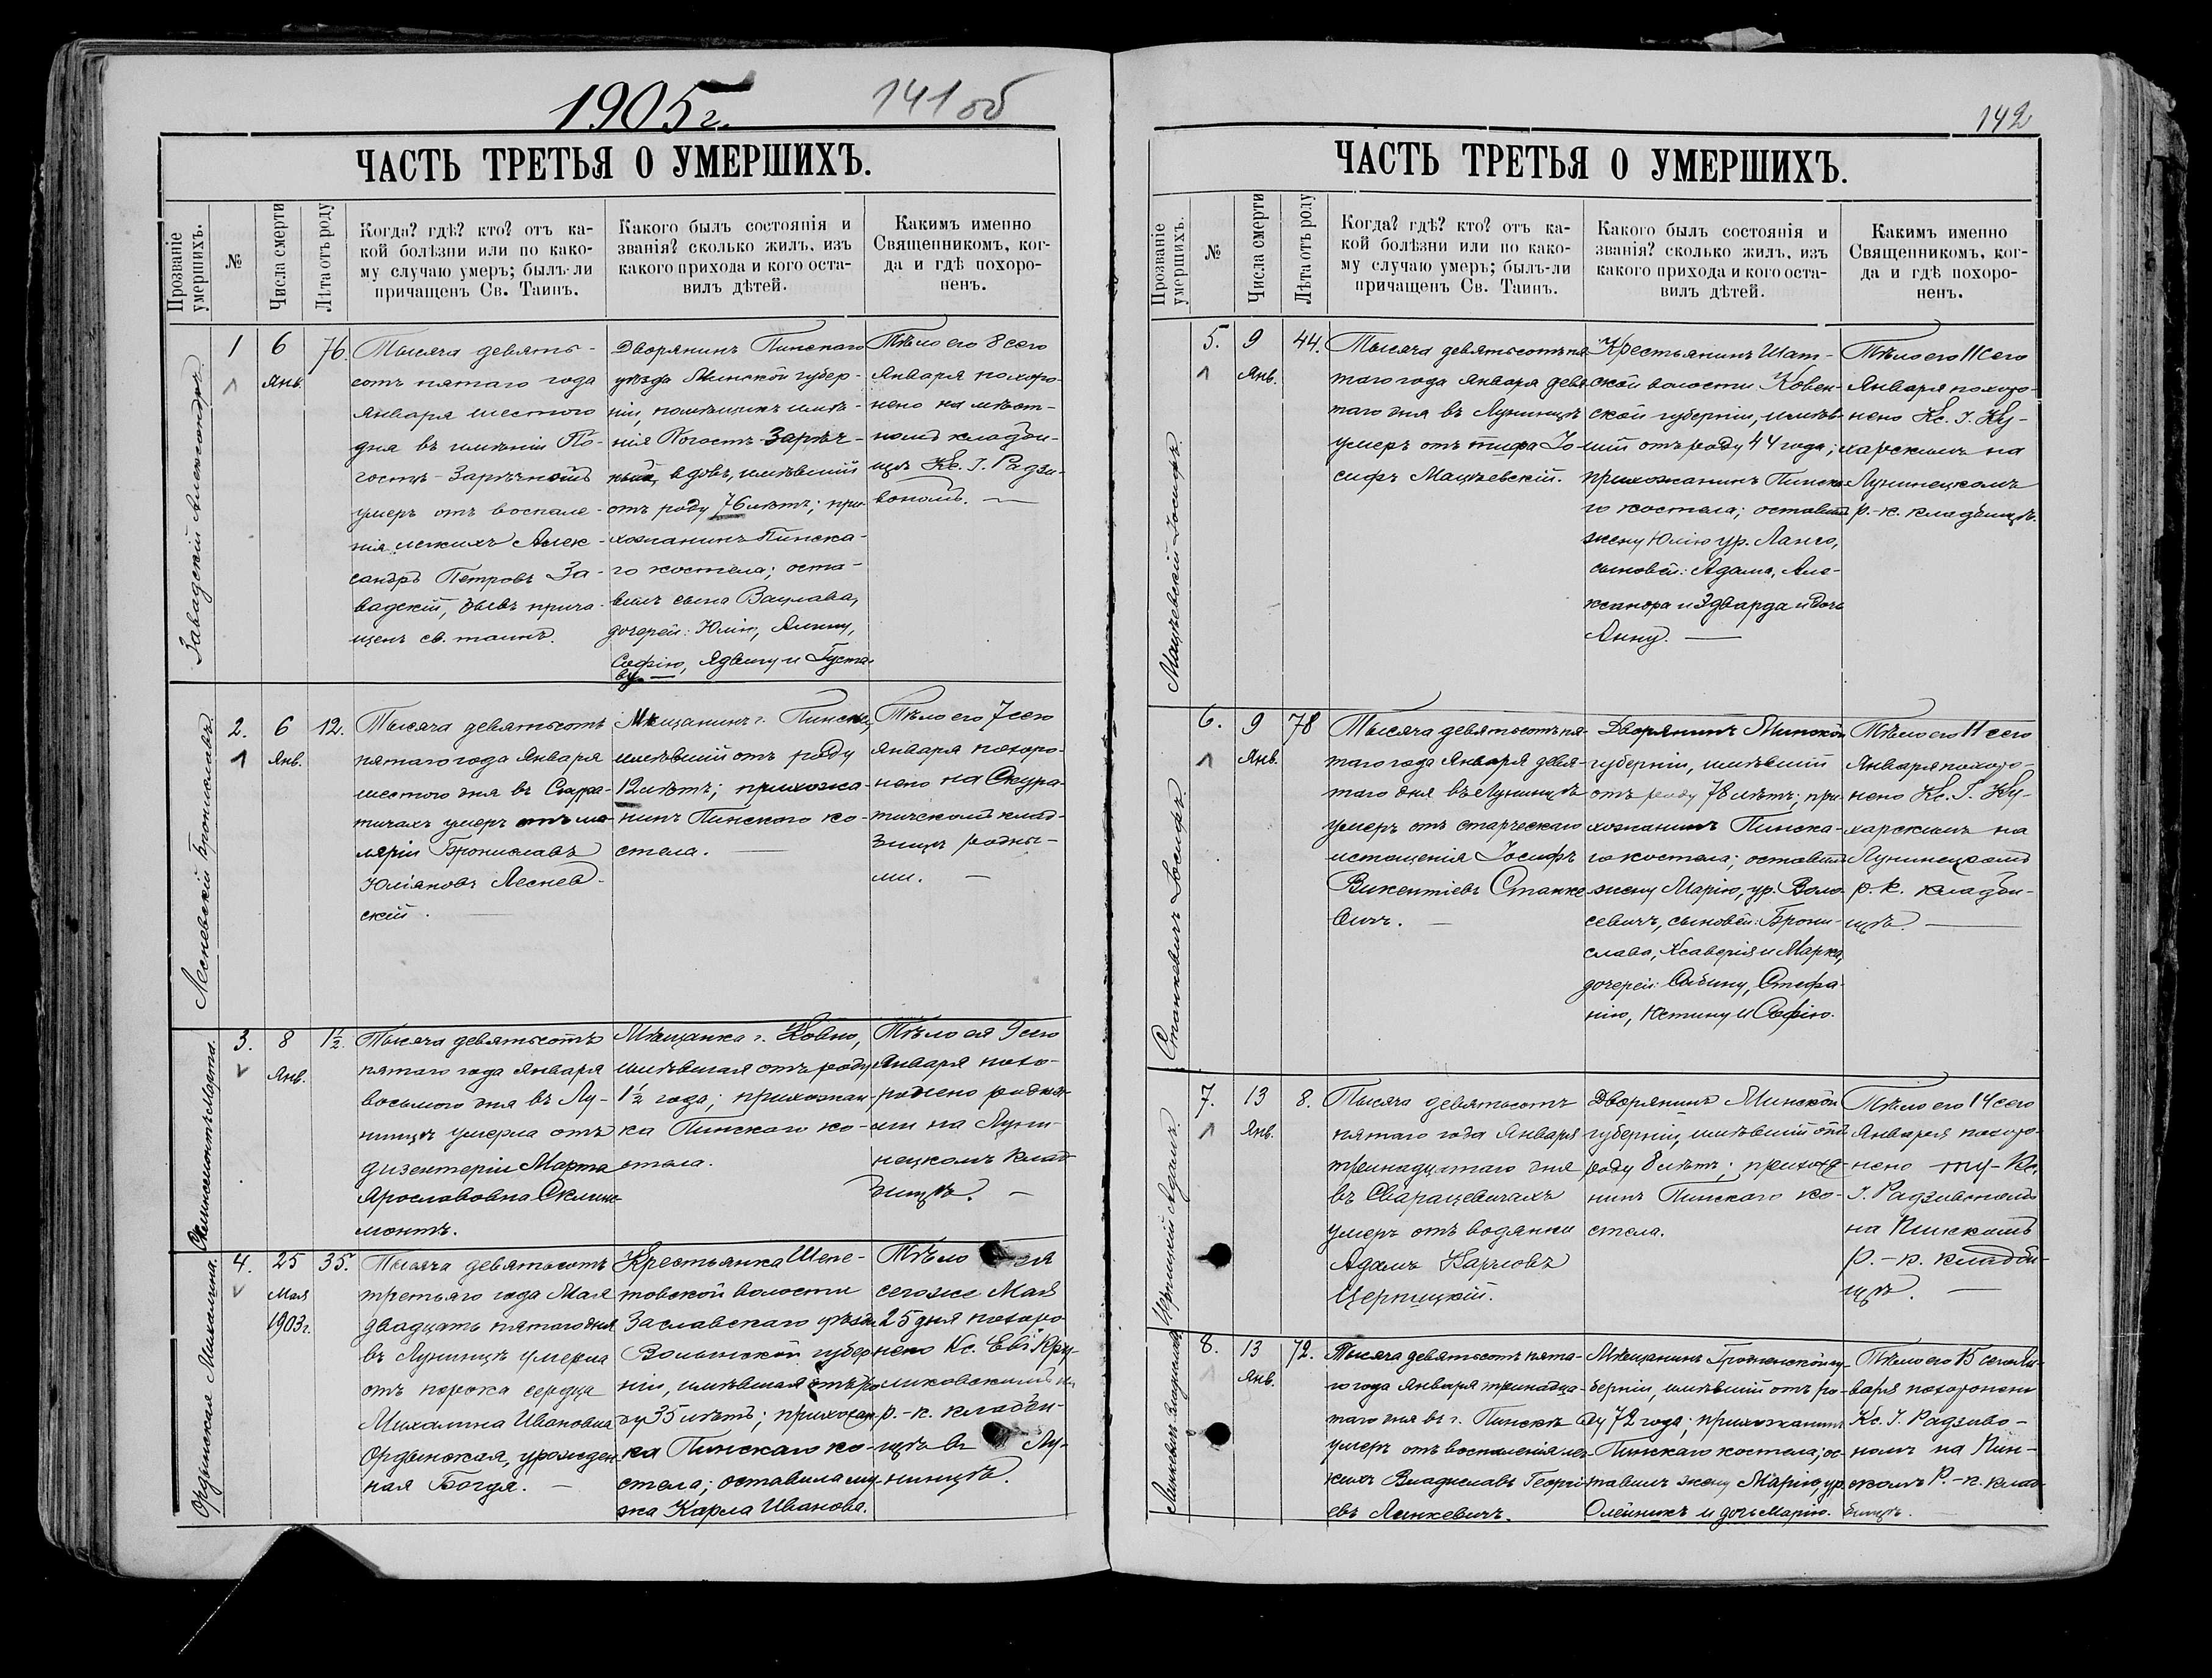 1905 г.
141 об
ЧАСТЬ ТРЕТЬЯ О УМЕРШИХЪ.
Прозваніе умершихъ.
№
Числа смерти
Лѣта отъ роду
Когда? гдѣ? кто? отъ ка-
кой болѣзни или по како-
му случаю умеръ; былъ-ли
причащенъ Св. Таинъ.
Какого былъ состоянія и
званія? сколько жилъ, изъ
какого прихода и кого оста-
вилъ дѣтей.
Какимъ именно
Священникомъ, ког-
да и гдѣ похоро-
ненъ.
Завадскій Александръ.
1
6
Янв.
76.
Тысяча девять-
сотъ пятаго года
Января шестого
дня въ имѣніи По-
гостѣ-Зарѣчномъ
умеръ отъ воспале-
нія легкихъ Алек-
сандръ Петровъ За-
вадскій, бывъ прича-
щенъ св. таинъ.
Дворянинъ Пинскаго
уѣзда Минской губер-
ніи, помѣщикъ имѣ-
нія Погостъ-Зарѣч-
ный, вдовъ, имѣвшій
отъ роду 76 лѣтъ; при-
хожанинъ Пинска-
го костела; оста-
вилъ сына Вацлава,
дочерей: Юлію, Алину,
Софію, Ядвигу и Густа-
ву. —
Тѣло его 8 сего
Января похоро-
нено на мѣст-
номъ кладби-
щѣ Кс. І. Радзи-
вономъ. —
Лесневскій Брониславъ.
2.
6
Янв.
12.
Тысяча девятьсотъ
пятаго года Января
шестого дня въ
тичахъ умеръ отъ ма-
ляріи Брониславъ
Юліановъ Леснев-
скій. —
Мѣщанинъ г. Пинска,
имѣвшій отъ роду
12 лѣтъ; прихожа-
нинъ Пинского ко-
стела. —
Тѣло его 7 сего
Января похоро-
нено на
тичскомъ клад-
бищѣ родны-
ми. —
Склинсмонтъ Марта.
3.
8
Янв.
1½.
Тысяча девятьсотъ
пятаго года Января
восьмого дня въ Лу-
нинцѣ умерла отъ
дизентеріи Марта
Ярославовна Склинс-
монтъ.
Мѣщанка г. Ковно,
имѣвшая отъ роду
1½ года; прихожан-
ка Пинского ко-
стела.
Тѣло ея 9 сего
Января похо-
ронено родны-
ми на Луни-
нецкомъ клад-
бищѣ. —
Ордынская Михалина.
4.
25
Мая
1903 г.
35.
Тысяча девятьсотъ
третьяго года Мая
двадцать пятаго дня
въ Лунинцѣ умерла
отъ порока сердца
Михалина Ивановна
Ордынская, урожден-
ная Богдя. —
Крестьянка Шепе-
товской волости
Заславскаго уѣзда
Волынской губер-
ніи, имѣвшая отъ ро-
ду 35 лѣтъ; прихожан-
ка Пинскаго ко-
стела; оставила му-
жа Карла Иванова.
Тѣло ея
сего же Мая
25 дня похоро-
нено Кс.
на
р.-к. кладби-
щѣ въ Лу-
нинцѣ.
142
ЧАСТЬ ТРЕТЬЯ О УМЕРШИХЪ.
Прозваніе умершихъ.
№
Числа смерти
Лѣта отъ роду
Когда? гдѣ? кто? отъ ка-
кой болѣзни или по како-
му случаю умеръ; былъ-ли
причащенъ Св. Таинъ.
Какого былъ состоянія и
званія? сколько жилъ, изъ
какого прихода и кого оста-
вилъ дѣтей.
Какимъ именно
Священникомъ, ког-
да и гдѣ похоро-
ненъ.
Мацѣевскій Іосифъ.
5.
9
Янв.
44.
Тысяча девятьсотъ пя-
таго года Января девя-
таго дня въ Лунинцѣ
умеръ отъ тифа Іо-
сифъ Мацѣевскій.
Крестьянинъ Шат-
ской волости Ковен-
ской губерніи, имѣв-
шій отъ роду 44 года;
прихожанинъ Пинска-
го костела; оставилъ
жену Юлію ур. Ланго,
сыновей: Адама, Але-
ксандра и Эдварда и дочь
Анну. —
Тѣло его 11 сего
Января похоро-
нено Кс. І. Ку-
харскимъ на
Лунинецкомъ
р.-к. кладбищѣ.
Станкевичъ Іосифъ.
6.
9
Янв.
78
Тысяча девятьсотъ пя-
таго года Января девя-
таго дня въ Лунинцѣ
умеръ отъ старческаго
истощенія Іосифъ
Викентіевъ Станке-
вичъ. —
Дворянинъ Минской
губерніи, имѣвшій
отъ роду 78 лѣтъ; при-
хожанинъ Пинска-
го костела; оставилъ
жену Марію, ур. Воло-
севичъ, сыновей: Брони-
слава, Ксаверія и Марка,
дочерей: Сабину, Стефа-
нію, Юстину и Софію.
Тѣло его 11 сего
Января похоро-
нено Кс. І. Ку-
харскимъ на
Лунинецкомъ
р.-к. кладби-
щѣ. —
Церпицкій Адамъ.
7.
13
Янв.
8.
Тысяча девятьсотъ
пятаго года Января
тринадцатаго дня
въ Сварацевичахъ
умеръ отъ водянки
Адамъ Карловъ
Церпицкій.
Дворянинъ Минской
губерніи, имѣвшій отъ
роду 8 лѣтъ; прихожа-
нинъ Пинского ко-
стела.
Тѣло его 14 сего
Января похоро-
нено Кс.
І. Радзивономъ
на Пинскомъ
р.-к. кладби-
щѣ. —
Линкевичъ Владиславъ
8.
13
Янв.
72.
Тысяча девятьсотъ пята-
го года Января тринадца-
таго дня въ г. Пинскѣ
умеръ отъ воспаленія лег-
кихъ Владиславъ Георгі-
евъ Линкевичъ.
Мѣщанинъ Гродненской гу-
берніи, имѣвшій отъ ро-
ду 72 года; прихожанинъ
Пинскаго костела; ос-
тавилъ жену Марію, ур.
Олейникъ и дочь Марію.
Тѣло его 15 сего Ян-
варя похоронено
Кс. І. Радзиво-
номъ на Пин-
скомъ Р.-к. клад-
бищѣ.